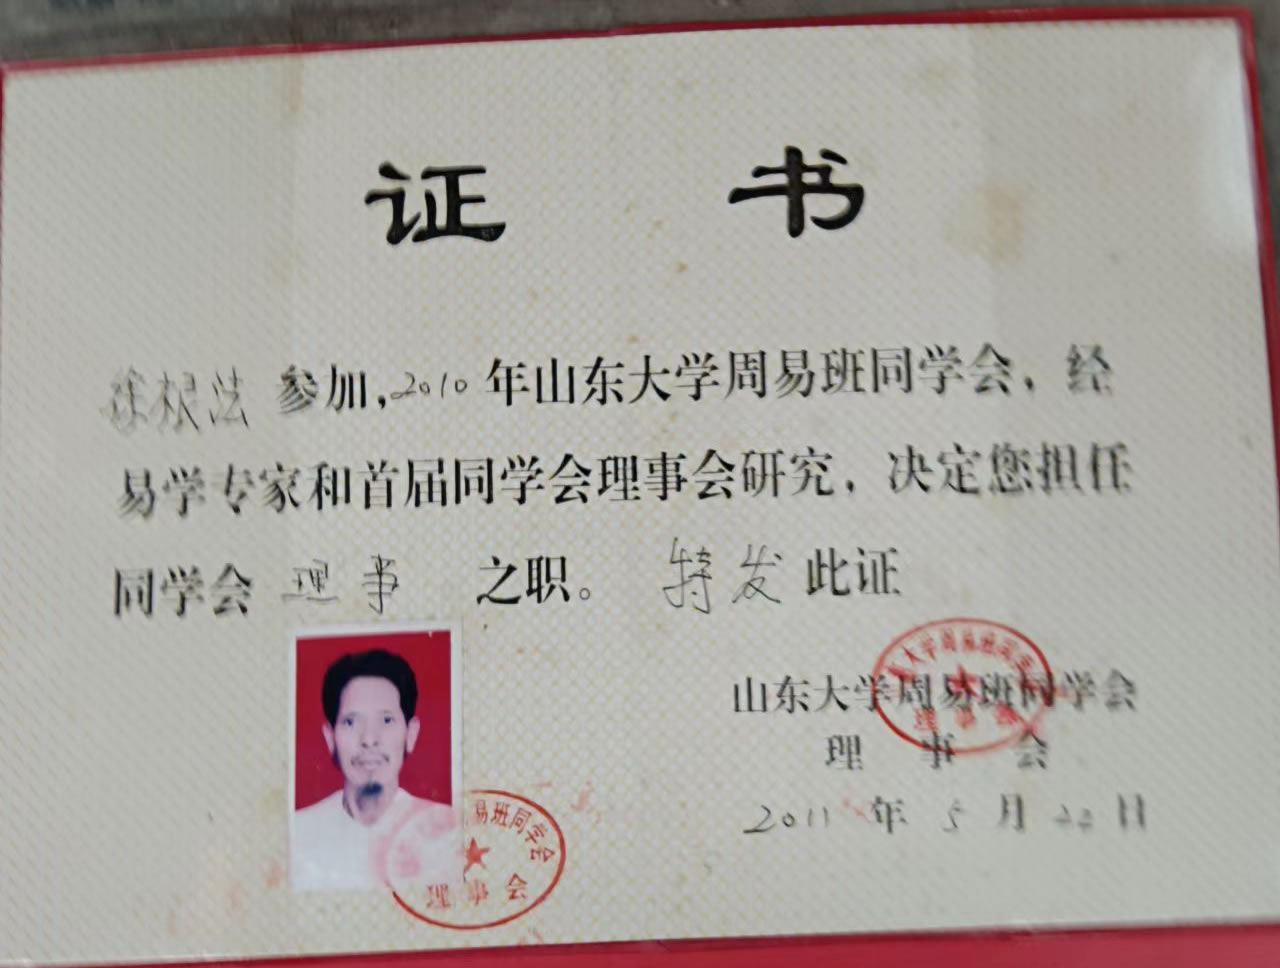 证 书
徐根法 参加,2010 年山东大学周易班同学会，经
易学专家和首届同学会理事会研究，决定您担任
同学会 理事 之职。 特发 此证
大学周易班同学会
理事会
山东大学周易班同学会
理 事 会
2011 年 5 月 22 日
易班同学会
理事会